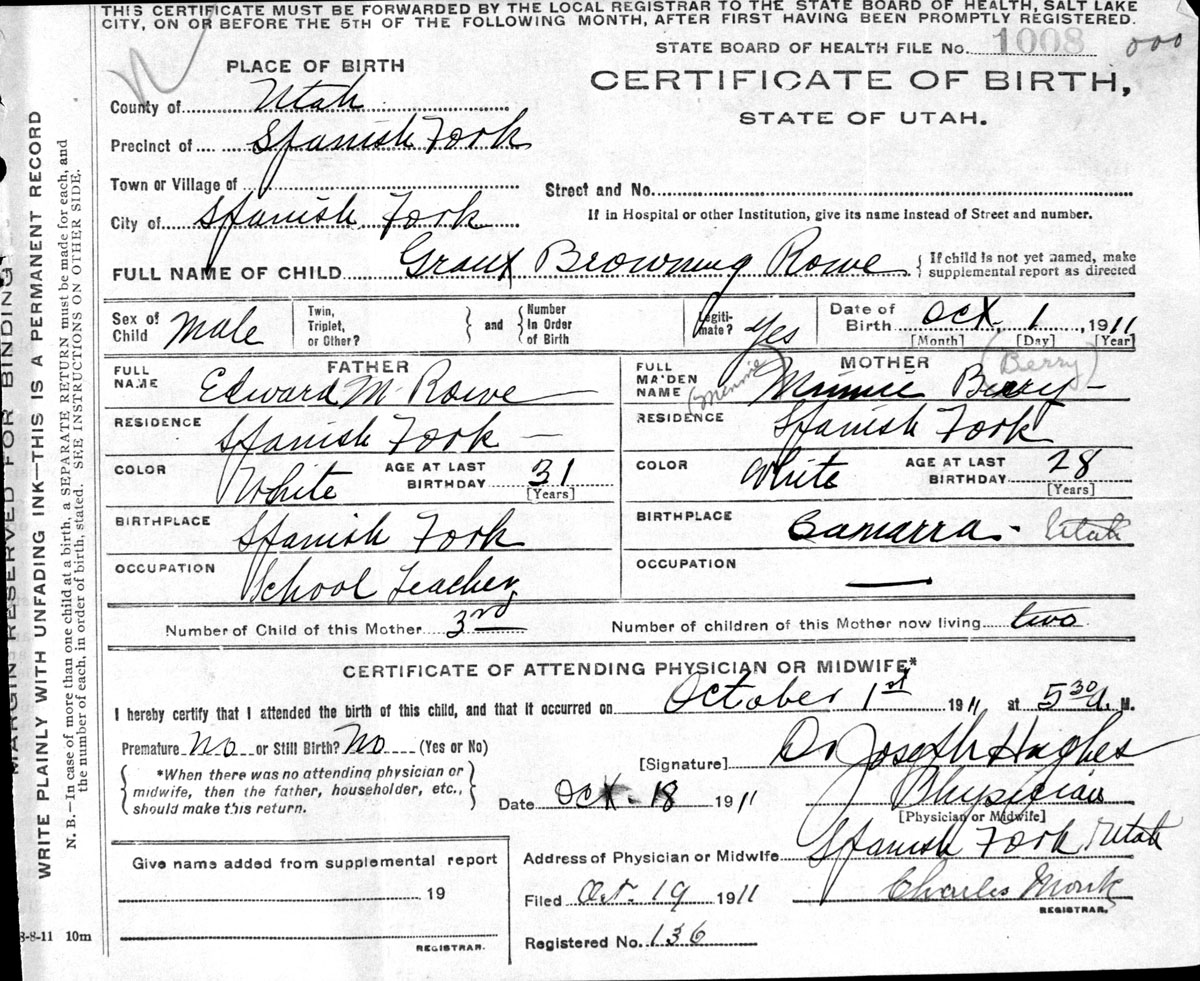 THIS CERTIFICATE MUST BE FORWARDED BY THE LOCAL REGISTRAR TO THE STATE BOARD OF HEALTH, SALT LAKE
CITY, ON OR BEFORE THE 5TH OF THE FOLLOWING MONTH, AFTER FIRST HAVING BEEN PROMPTLY REGISTERED.
STATE BOARD OF HEALTH FILE No. 1008 000
PLACE OF BIRTH
CERTIFICATE OF BIRTH,
STATE OF UTAH.
County of Utah
Precinct of Spanish Fork
Town or Village of
Street and No.
City of Spanish Fork
If in Hospital or other Institution, give its name instead of Street and number.
FULL NAME OF CHILD Grant Browning Rowe { If child is not yet named, make supplemental report as directed
Sex of Child Male Twin, Triplet, or Other? } and { Number In Order of Birth Legiti-mate? Yes Date of Birth Oct. 1, 1911
[Month] [Day] [Year]
FATHER
MOTHER (Berry)
FULL NAME Edward M. Rowe
FULL MAIDEN NAME (Minnie) Minnie Berry
RESIDENCE Spanish Fork
RESIDENCE Spanish Fork
COLOR White AGE AT LAST BIRTHDAY 31 [Years]
COLOR White AGE AT LAST BIRTHDAY 28 [Years]
BIRTHPLACE Spanish Fork
BIRTHPLACE Camarra - Utah
OCCUPATION School Teacher
OCCUPATION —
Number of Child of this Mother 3rd Number of children of this Mother now living two
CERTIFICATE OF ATTENDING PHYSICIAN OR MIDWIFE*
I hereby certify that I attended the birth of this child, and that it occurred on October 1st 1911 at 5 30 A. M.
Premature No or Still Birth? No (Yes or No)
[Signature] Dr Joseph Hughes
{ *When there was no attending physician or midwife, then the father, householder, etc., should make this return. }
Date Oct. 18 1911 Physician
[Physician or Midwife]
Give name added from supplemental report
19
REGISTRAR.
Address of Physician or Midwife Spanish Fork Utah
Filed Oct. 19 1911 Charles Monk
REGISTRAR.
Registered No. 136
8-8-11 10m
MARGIN RESERVED FOR BINDING
WRITE PLAINLY WITH UNFADING INK—THIS IS A PERMANENT RECORD
N. B.—In case of more than one child at a birth, a SEPARATE RETURN must be made for each, and
the number of each, in order of birth, stated. SEE INSTRUCTIONS ON OTHER SIDE.